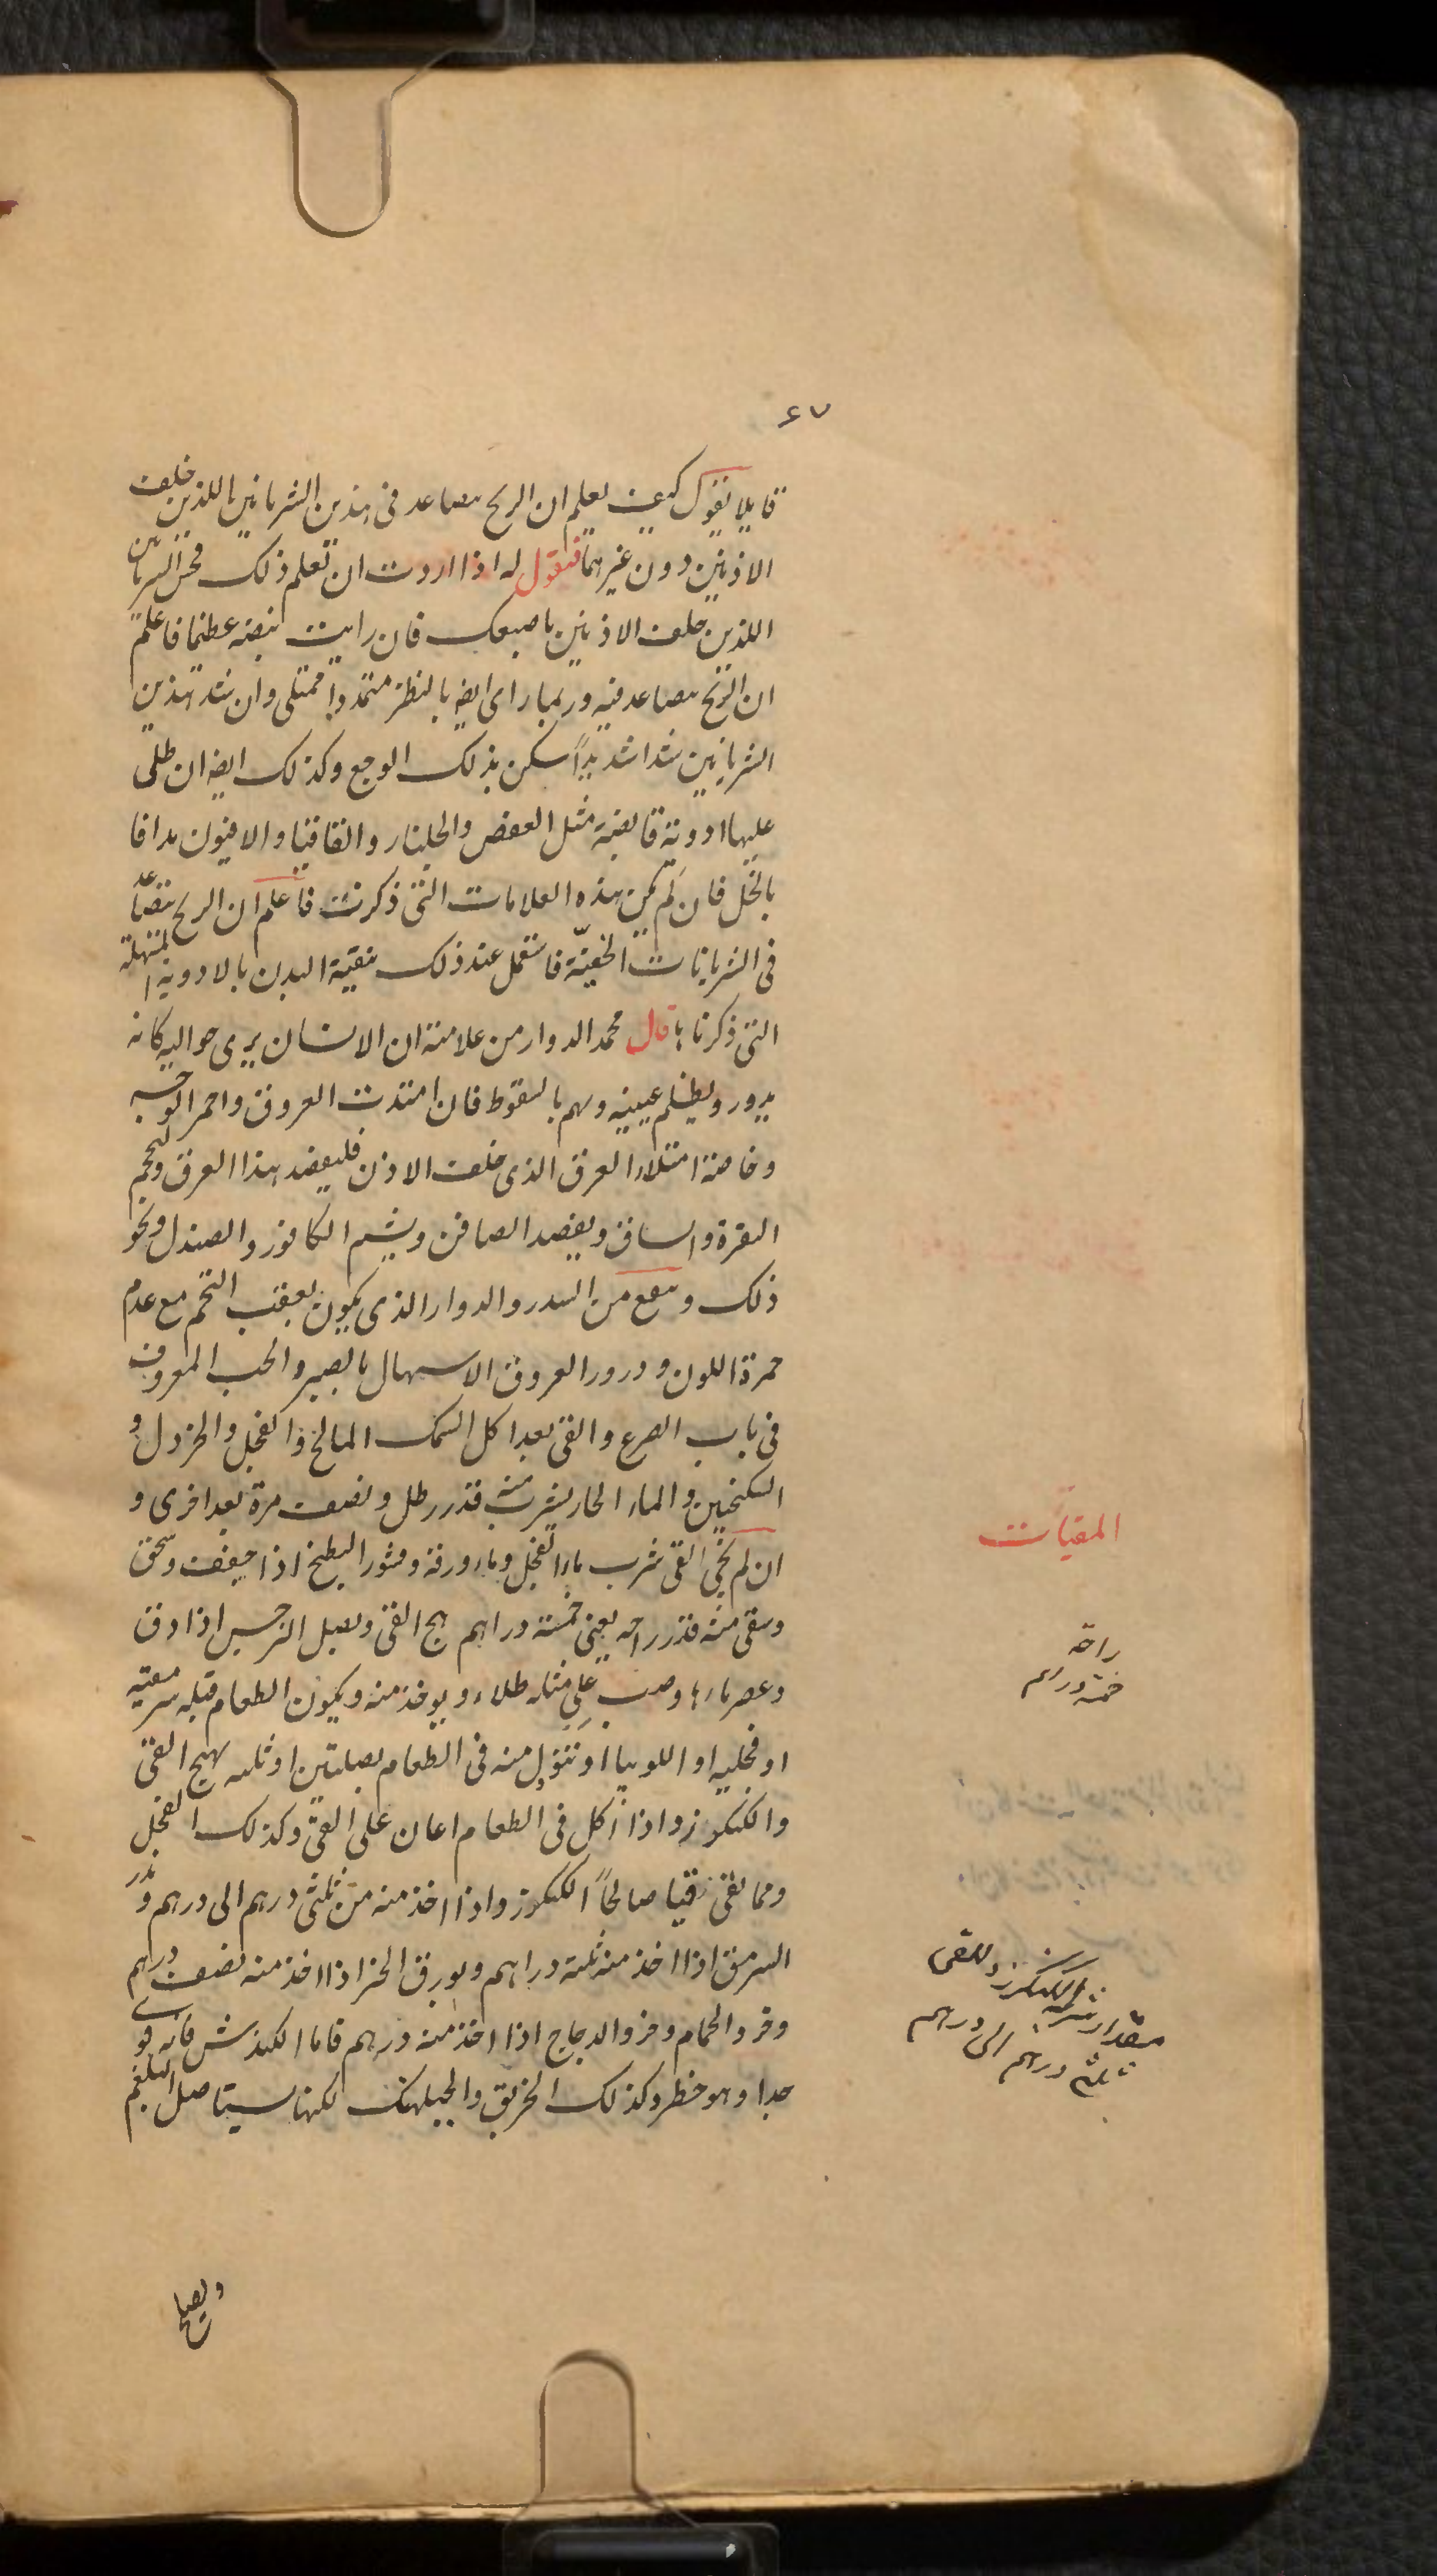 ٤٧
قايلا يقول كيف يعلم ان الريح يصاعد في هذين الشريانين اللذين خلف
الاذنين دون غيرهما فنقول له اذا اردت ان تعلم ذلك فجس الشريانين
اللذين خلف الاذنين باصبعك فان رايت نبضه عظيما فاعلم
ان الريح يصاعد فيه وربما راى ايضا بالنظر متمددا ممتلى وان شد هذين
الشريانين شدا شديدا سكن بذلك الوجع وكذلك ايضا ان طلى
عليها ادوية قابضة مثل العفص والجلنار والقاقيا والافيون مدافا
بالخل فان لم يكن هذه العلامات التى ذكرت فاعلم ان الريح يتصاعد
فى الشريانات الخفية فاستعمل عند ذلك تنقية البدن بالادوية المسهلة
التى ذكرناها قال محمد الدوار من علامته ان الانسان يرى حواليه كانه
يدور ويظلم عينيه ويهم بالسقوط فان امتدت العروق واحمر الوجه
وخاصة امتلاء العرق الذى خلف الاذن فليفصد هذا العرق وليحجم
النقرة والساق ويفصد الصافن ويشم الكافور والصندل ونحو
ذلك وينفع من السدر والدوار الذى يكون بعقب التخم مع عدم
حمرة اللون ودرور العروق الاسهال بالصبر والحب المعروف
فى باب الصرع والقى بعد اكل السمك المالح والفجل والخردل و
السكنجبين والماء الحار يشرب منه قدر رطل ونصف مرة بعد اخرى و
ان لم يجئ القى شرب ماء الفجل وماء ورقه وقشور البطيخ اذا جففت وسحق
وسقى منه قدر راحه يعنى خمسة دراهم هيج القى وبصل النرجس اذا دق
وعصر ماءها وصب على مثله طلاء ويوخذ منه ويكون الطعام قبله سرمقيه
او فجليه او اللوبيا او تنول منه فى الطعام بصلتين او ثلثه يهيج القى
والكنكرزد اذا اكل فى الطعام اعان على القى وكذلك الفجل
ومما يقى قيا صالحا الكنكرزد اذا اخذ منه من ثلثى درهم الى درهم وبزر
السرمق اذا اخذ منه ثلثة دراهم وبورق الخبز اذا اخذ منه نصف درهم
وخرو الحمام وخرو الدجاج اذا اخذ منه درهم فاما الكندش فانه قوى
جدا وهو خطر وكذلك الخربق والجبلهنك لكنها يستاصل البلغم
المقيات
راحه
خمسة دراهم
مقدار شربة الكنكرزد للقى
ثلثى درهم الى درهم